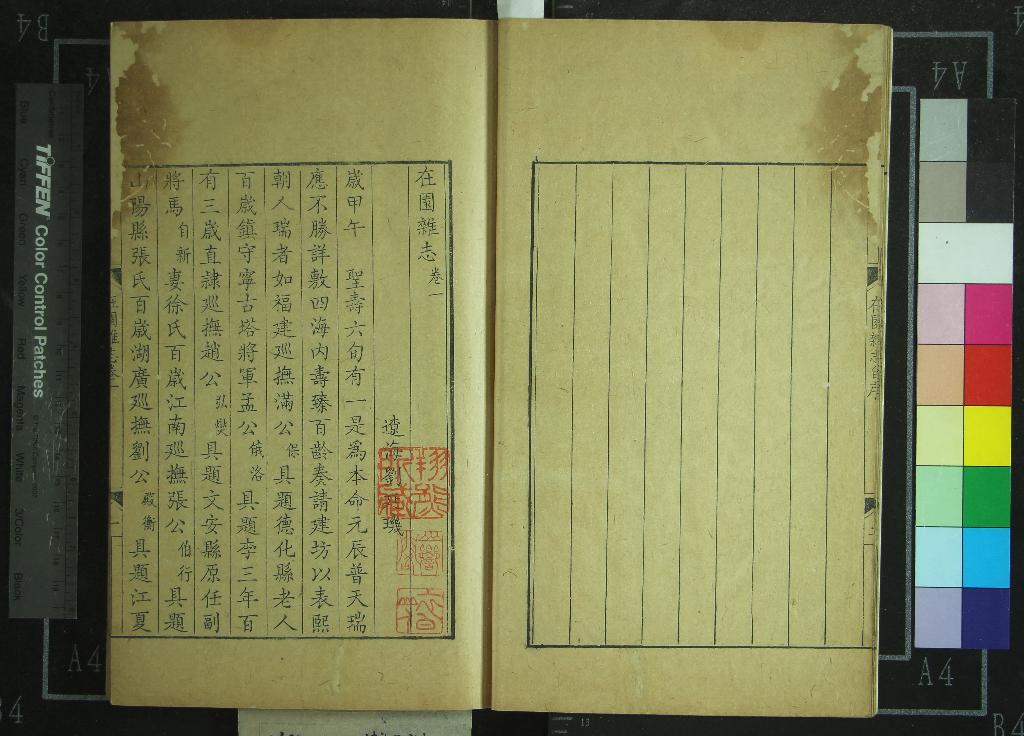 在園雜志卷一
遼海劉
歲甲午　聖壽六旬有一是爲本命元辰普天瑞
應不勝詳敷四海內壽臻百齡奏請建坊以表熙
朝人瑞者如福建廵撫滿公保具題德化縣老人
百歲鎮守寧古塔將軍孟公俄洛具題李三年百
有三歲直隷廵撫趙公弘燮具題文安縣原任副
將馬自新妻徐氏百歲江南廵撫張公伯行具題
山陽縣張氏百歲湖廣廵撫劉公殿衡具題江夏
在園雜志卷一
TIFFEN Color Control Patches
Blue Cyan Green Yellow Red Magenta White 3/Color Black
A4
B4
A4
A4
A4
B4